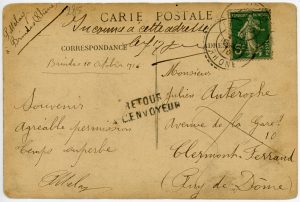 CARTE POSTALE
Inconnu à cette adresse
CORRESPONDANCE
ADRESSE
Brides 10 Octobre
Monsieur
Julien Auteroche
RETOUR
A L'ENVOYEUR
Souvenir
Agréable permission
Temps superbe
Avenue de la Gare
10
Clermont-Ferrand
(Puy de Dôme)